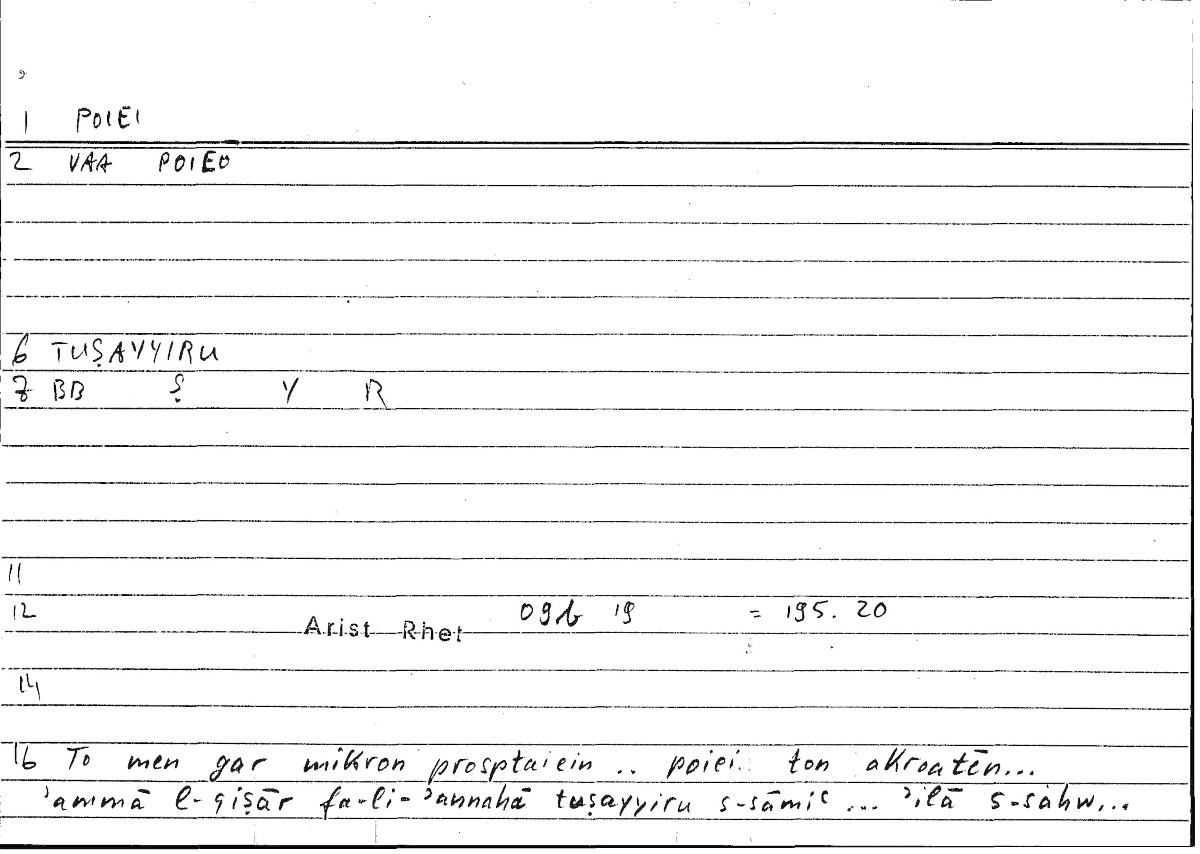 1 POIEI
2 VAA POIEO
6 TUṢAYYIRU
7 BB Ṣ Y R
11
12 Arist Rhet 09b 19 = 195. 20
14
16 To men gar mikron prosptaiein .. poiei ton akroatēn...
ʾammā l-qiṣār fa-li-ʾannahā tuṣayyiru s-sāmiʿ ... ʾilā s-sahw...